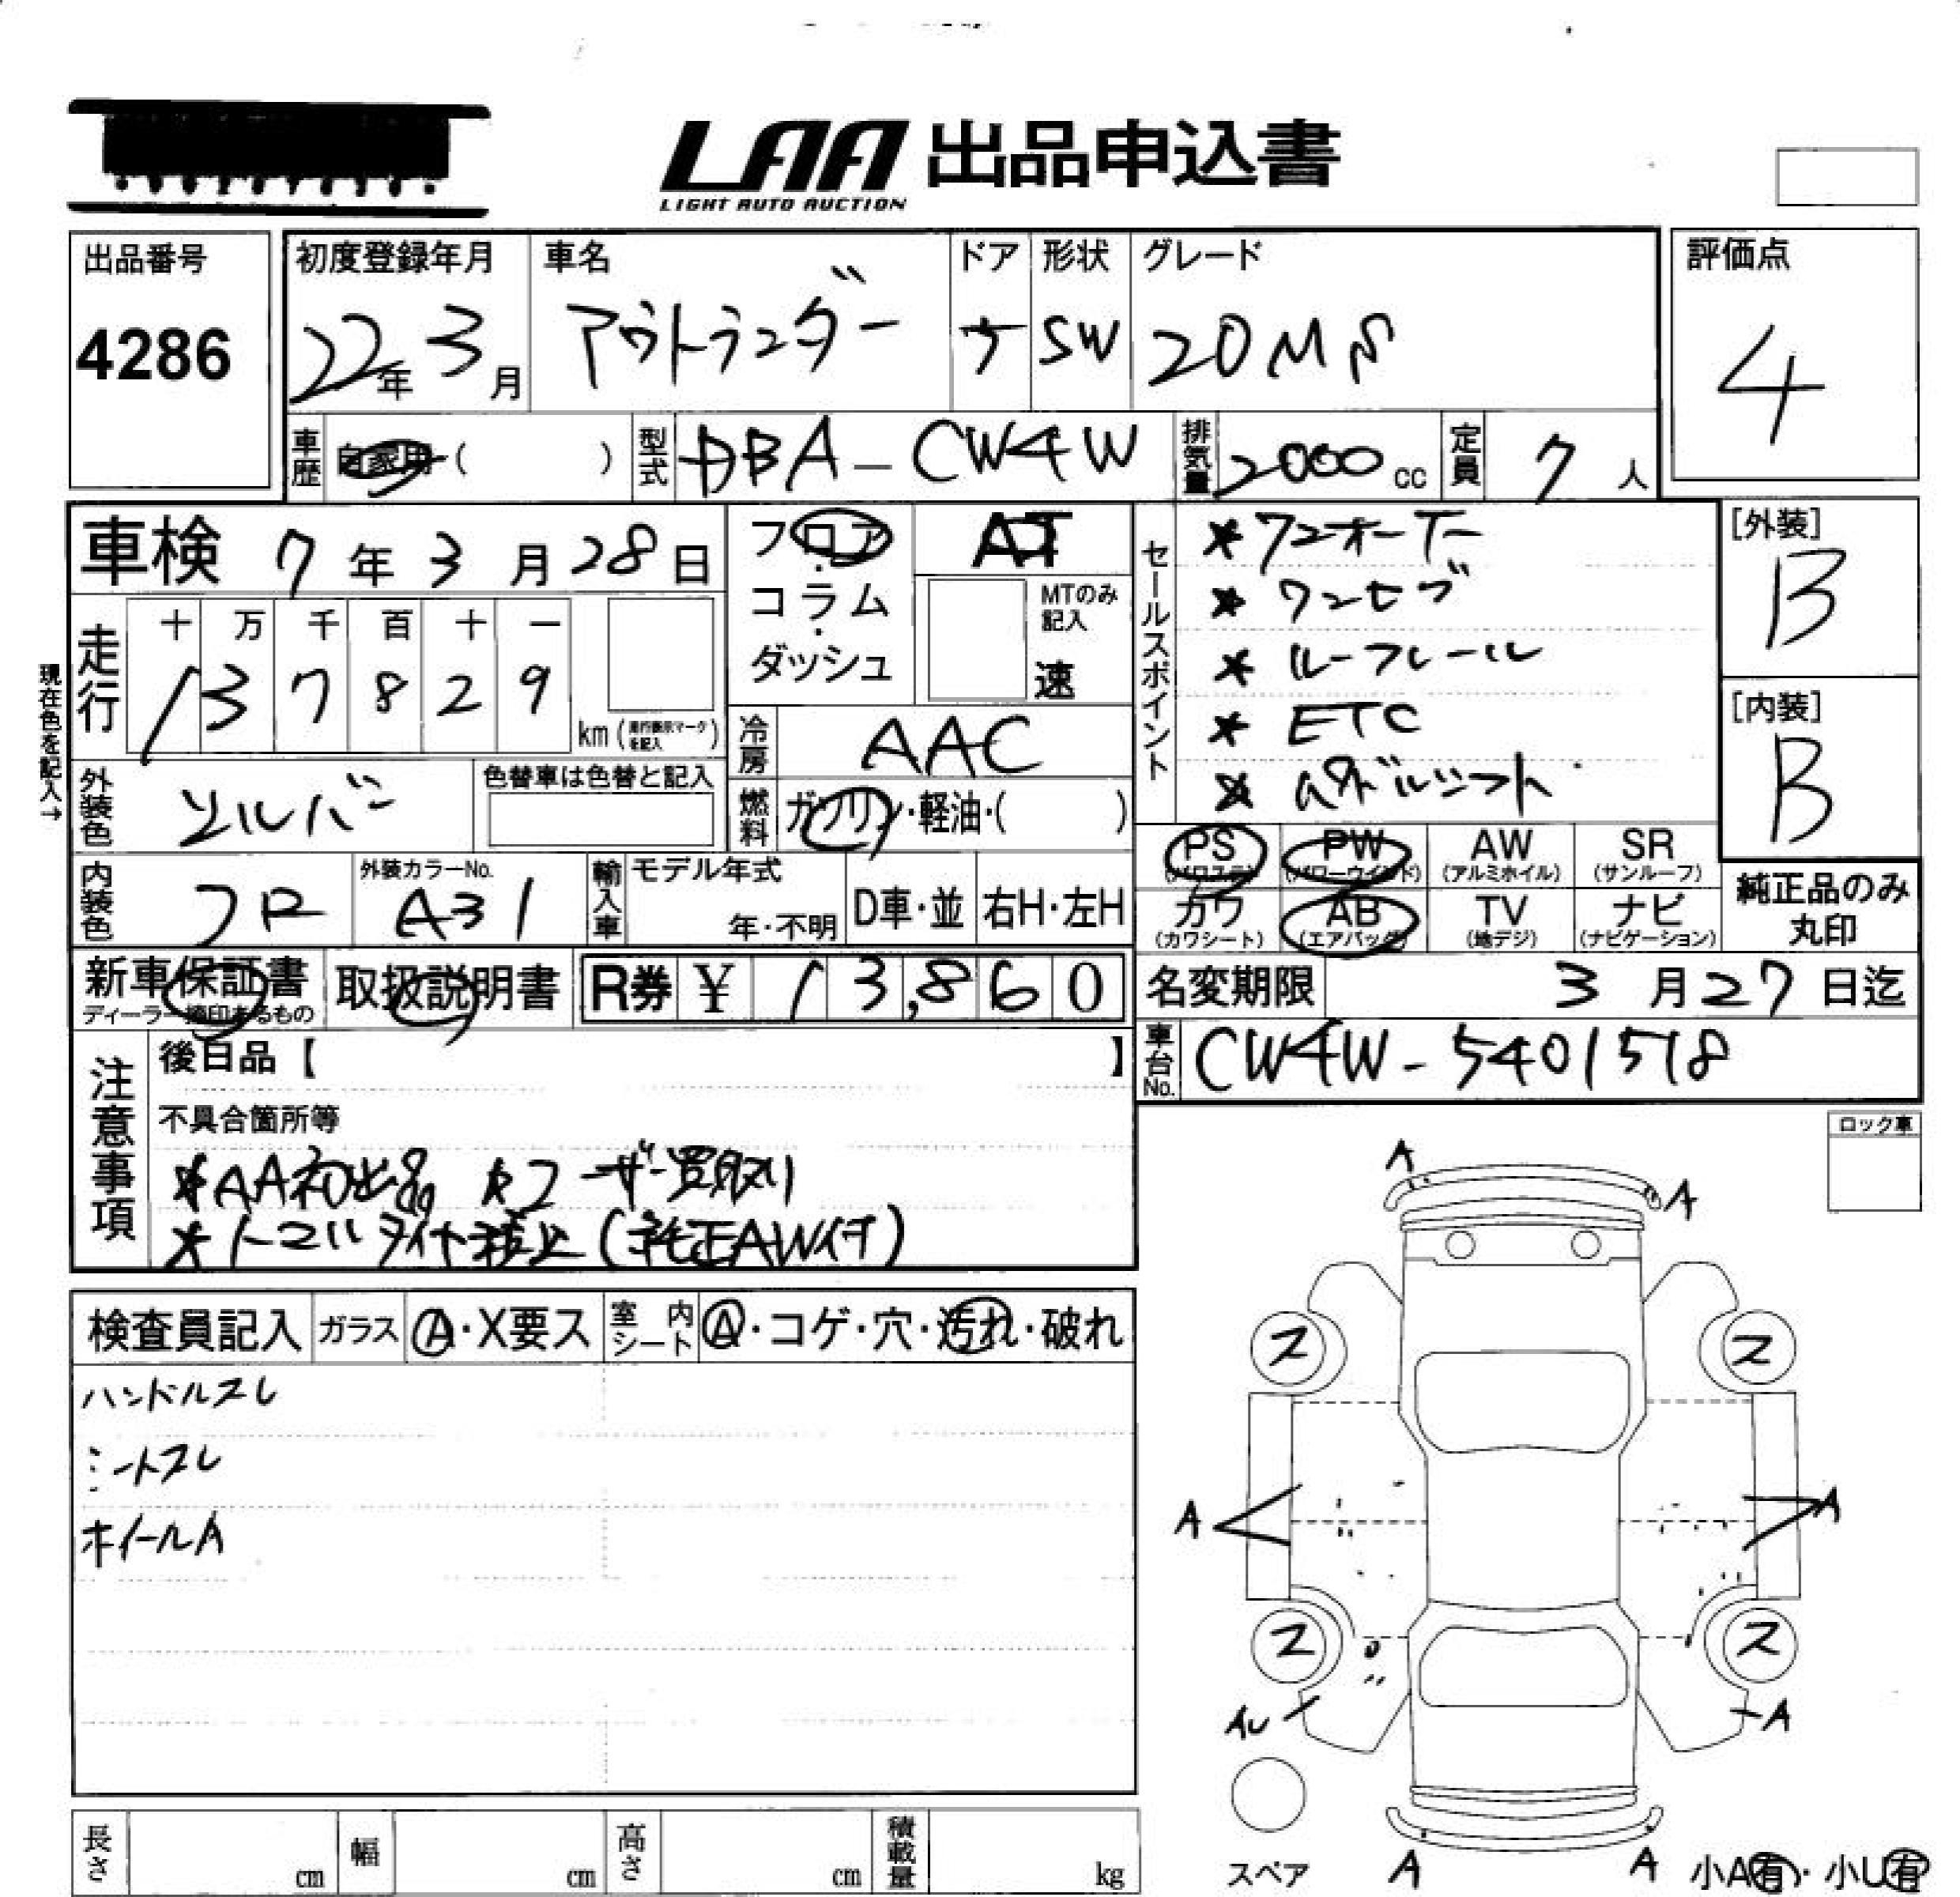 LAA 出品申込書
LIGHT AUTO AUCTION
出品番号 初度登録年月 車名 ドア 形状 グレード 評価点
4286 22年3月 アウトランダー 5 SW 20MS 4
車歴 自家用 ( ) 型式 DBA-CW4W 排気量 2000cc 定員 7人
車検 7年3月28日
フロア・コラム・ダッシュ
AT
MTのみ記入
速
セールスポイント
*ワンオーナー
*ワンセグ
*ルーフレール
*ETC
*パドルシフト
[外装]
B
[内装]
B
現在色を記入→
走行 十 万 千 百 十 一
1 3 7 8 2 9 km (走行表示マークを記入)
冷房 AAC
外装色 シルバー 色替車は色替と記入
燃料 ガソリン・軽油・( )
PS AW PW SR
(パワステ) (パワーウインド) (アルミホイル) (サンルーフ)
カワ AB TV ナビ
(カワシート) (エアバッグ) (地デジ) (ナビゲーション)
純正品のみ
丸印
内装色 外装カラーNo. A31 輸入車 モデル年式 年・不明 D車・並 右H・左H
新車保証書 取扱説明書 R券 ¥ 13,860
ディーラー捺印あるもの
名変期限 3月27日迄
車台No. CW4W-5401518
注意事項
後日品【 】
不具合箇所等
*AA初出品 *ユーザー買取り
*ノーマルタイヤ積込(純正AW付)
ロック車
A
A
検査員記入 ガラス A・X要ス 室内シート A・コゲ・穴・汚れ・破れ
ハンドルスレ
シートスレ
ホイールA
ス ス
A A
ス ス
A
A A
スペア
小A有・小U有
長さ cm 幅 cm 高さ cm 積載量 kg